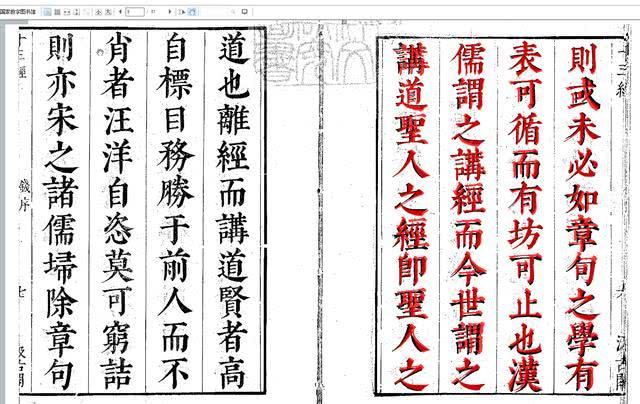 國家數字圖書館
則或未必如章句之學有
表可循而有坊可止也漢
儒謂之講經而今世謂之
講道聖人之經即聖人之
道也離經而講道賢者高
自標目務勝于前人而不
肖者汪洋自恣莫可窮詰
則亦宋之諸儒埽除章句
十三經
序
七
汲古閣